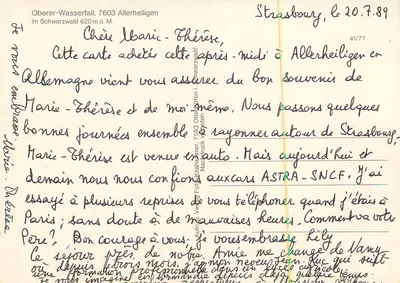 Oberer-Wasserfall, 7603 Allerheiligen
im Schwarzwald 620 m ü. M.
41/77
Strasbourg, le 20.7.89
Chère Marie-Thérèse,
Cette carte achetée cette après-midi à Allerheiligen en
Allemagne vient vous assurer du bon souvenir de
Marie-Thérèse et de moi même. Nous passons quelques
bonnes journées ensemble à rayonner autour de Strasbourg,
Marie-Thérèse est venue en auto. Mais aujourd'hui et
demain nous nous confions aux cars ASTRA-SNCF. J'ai
essayé à plusieurs reprises de vous téléphoner quand j'étais à
Paris; sans doute à de mauvaises heures. Comment va votre
Père? Bon courage à vous. Je vous embrasse Lily
Le séjour près de notre Amie me change de
où depuis trois mois, j'ai mon neveu Jean-Luc qui suit
une formation professionnelle dans un
Je vous embrasse. Marie-Thérèse